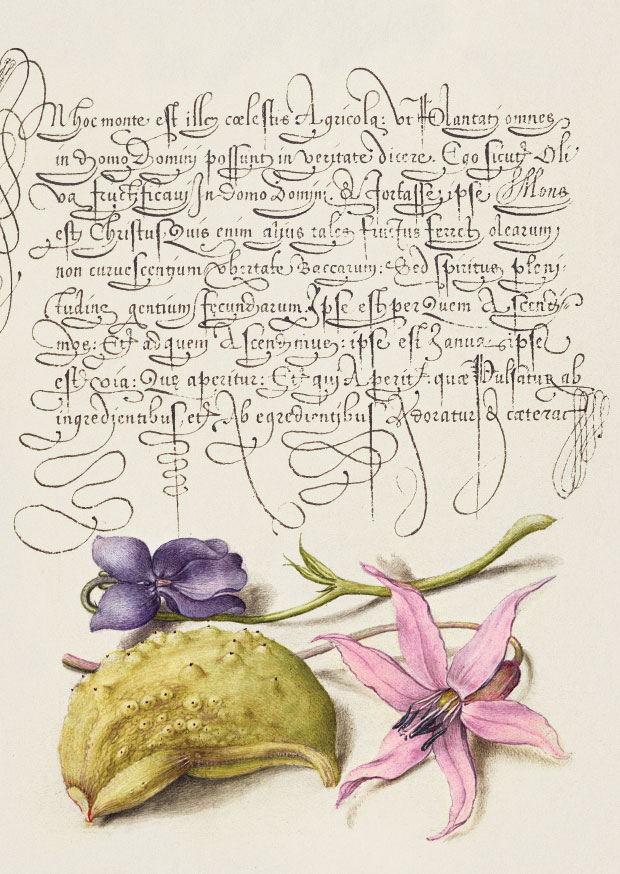 In hoc monte est ille cœlestis Agricola: Vt Plantati omnes
in domo Domini possunt in veritate dicere. Ego sicut Oli
va fructificaui In domo Domini. & Fortasse ipse Mons
est Christus Quis enim alius tales fructus ferret olearum
non curuescentium vbertate Baccarum: Sed spiritus pleni-
tudine gentium fecundarum. Ipse est per Quem Ascendi-
mus: Et ad quem Ascendimus: ipse est Ianua ipse
est via: Quæ aperitur: Et qui Aperit: quæ Pulsatur ab
ingredientibus et Ab egredientibus Adoratur & cæterac